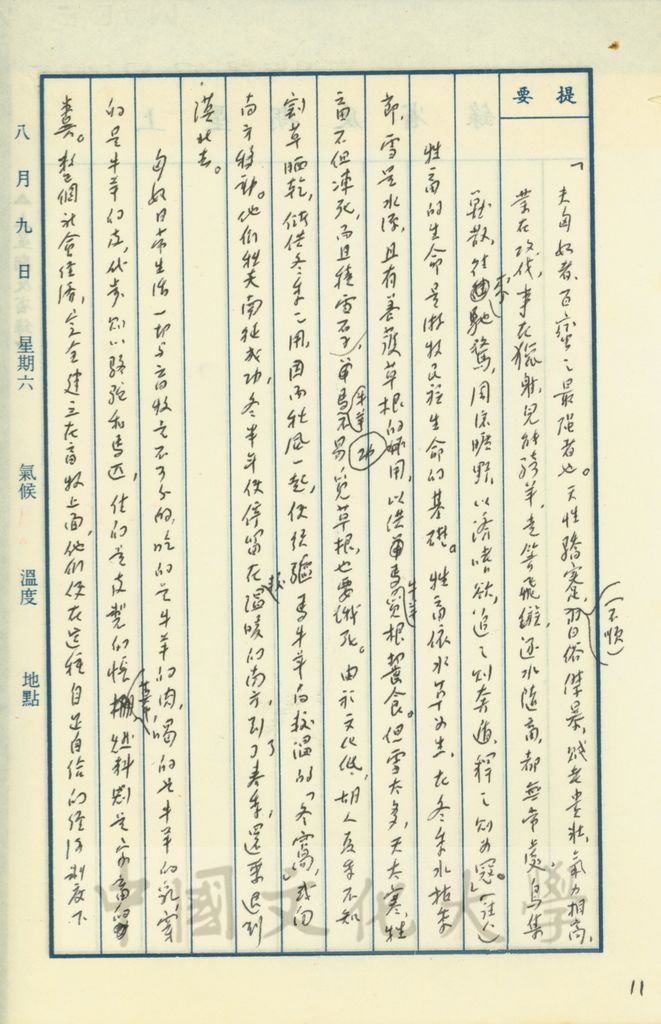 提要
「夫匈奴者,百蠻之最強者也。天性驕蹇,習俗傑暴,賤老貴壯,氣力相高,
(不順)
業在攻伐,事在獵射,兒能騎羊,走箭飛鏃,逐水隨畜,都無常處,鳥集
獸散,往來馳騖,周流曠野,以濟嗜欲,追之則奔遁,釋之則為寇。」(註八)
牲畜的生命是游牧民族生命的基礎。牲畜依水草為生,在冬季水枯草
即,雪是水源,且有養護草根的作用,以供牛羊馬覓根囓食。但雪太多,天太寒,牲
畜不但凍死,而且積雪不易覓草根,也要餓死。由於文化低,胡人夏季不知
割草晒乾,儲供冬季之用,因而秋風一起,便須驅馬牛羊向較溫的「冬窩」,或向
南方移動。他們往南征成功,冬半年便停留在較溫暖的南方,到了春季,還要退到
漠北去。
匈奴日常生活一切與畜牧之不可分的,吃的是牛羊的肉,喝的是牛羊的乳,穿
的是牛羊的皮,代步則以駱駝和馬匹,住的是皮製的帳棚,燃料則是家畜的
糞。整個社會經濟,完全建立在畜牧上面,他們便在這種自足自給的經濟制度下
八月九日 星期六 氣候 溫度 地點
中國文化大學
11